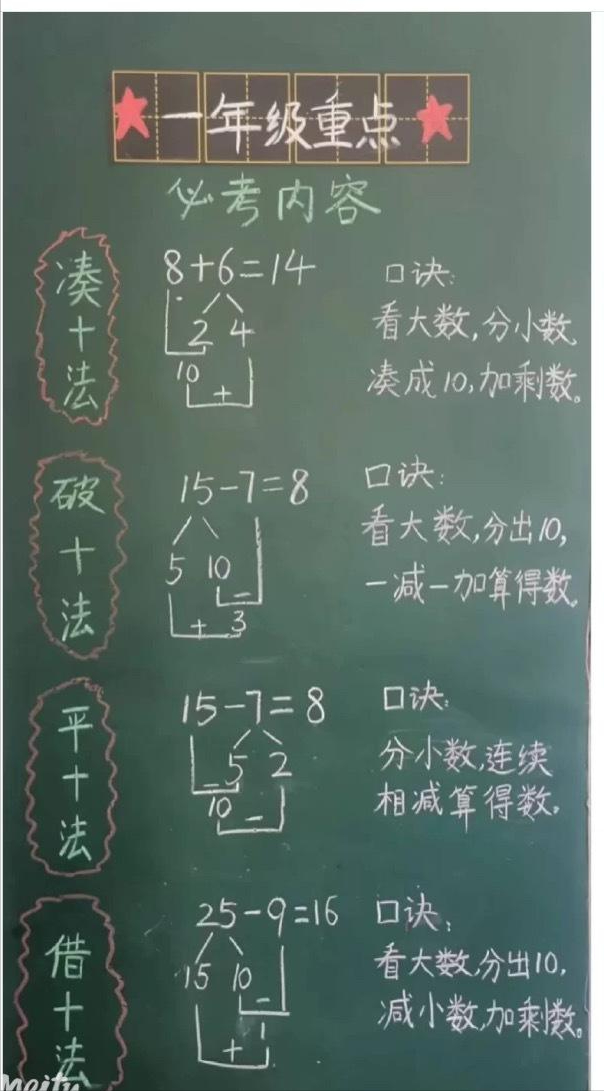 一年级重点
必考内容
凑十法
8+6=14
2 4
10
+
口诀:
看大数,分小数,
凑成10,加剩数。
破十法
15-7=8
5 10
-
+ 3
口诀:
看大数,分出10,
一减一加算得数。
平十法
15-7=8
- 5 2
10 -
口诀:
分小数,连续
相减算得数。
借十法
25-9=16
15 10
-
1
+
口诀:
看大数,分出10,
减小数,加剩数。
Meitu